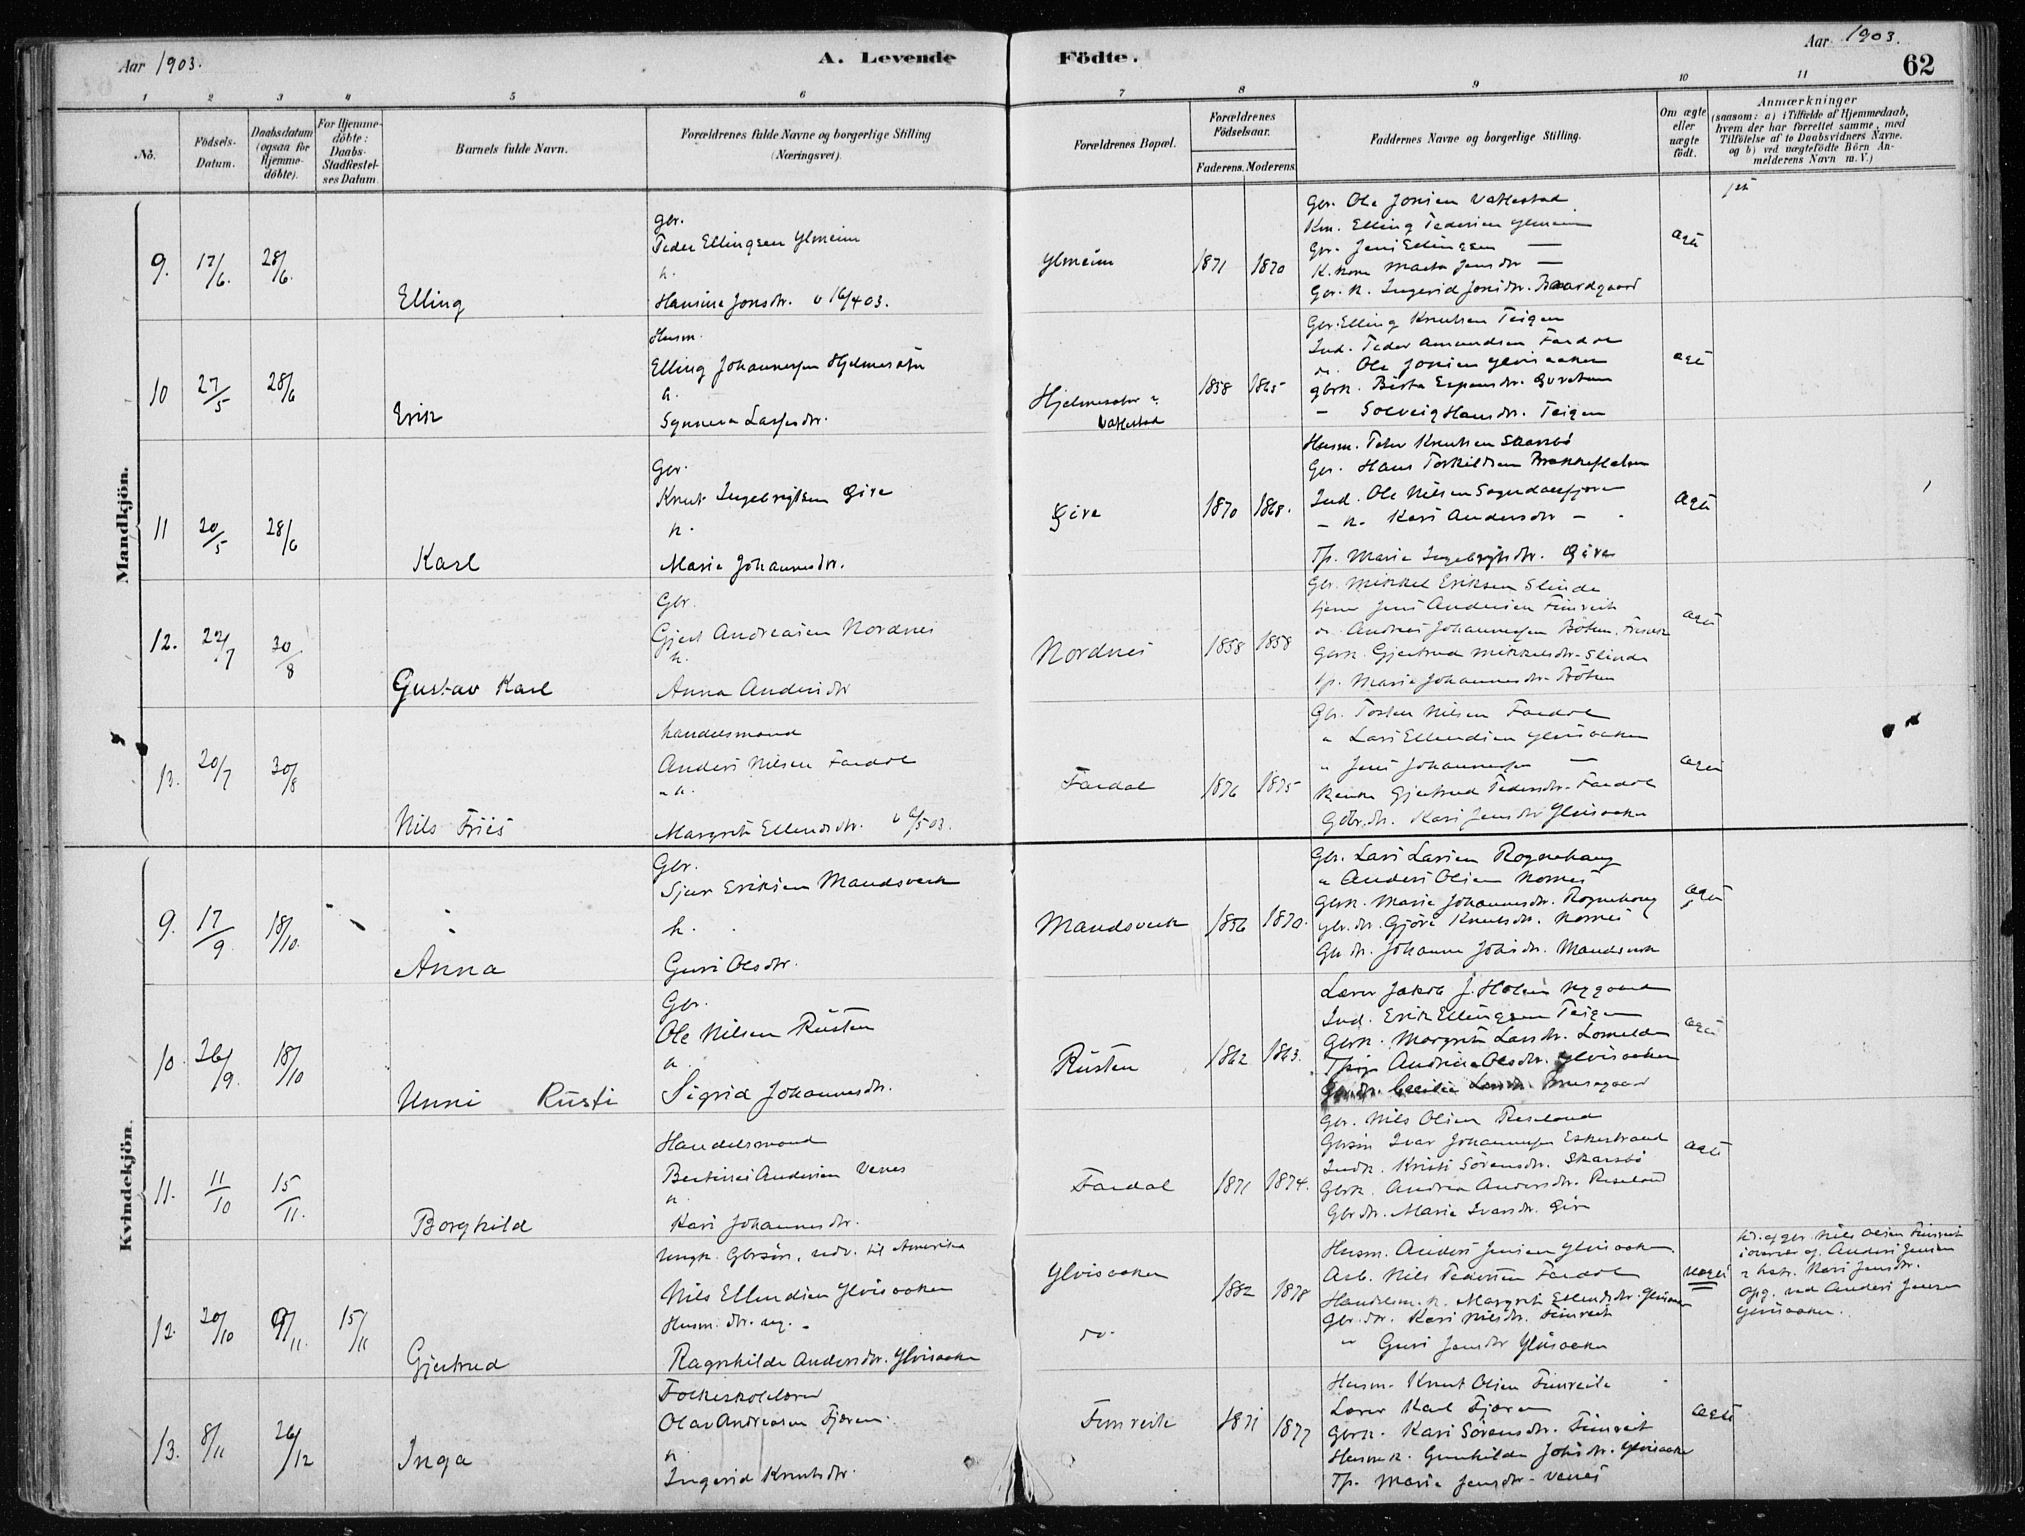 Aar 1903.
A. Levende Födte.
Aar 1903.
62
1 2 3 4 5 6 7 8 9 10 11
No.
Födsels-Datum.
Daabsdatum (ogsaa for Hjemme-döbte).
For Hjemme-döbte: Daabs-Stadfæstel-ses Datum.
Barnets fulde Navn.
Forældrenes fulde Navne og borgerlige Stilling (Næringsvei).
Forældrenes Bopæl.
Forældrenes Födselsaar.
Faderens. Moderens.
Faddernes Navne og borgerlige Stilling.
Om ægte eller uægte födt.
Anmærkninger (saasom: a) i Tilfælde af Hjemmedaab, hvem der har forrettet samme, med Tilföielse af to Daabsvidners Navne. og b) ved uægtefödte Börn Anmelderens Navn m. V.)
Mandkjön.
9. 17/6. 28/6.
Elling
Gbr.
Peder Ellingsen Ylmeim
h.
Hansine Jonsdr. v 16/4 03.
Ylmeim
1871 1870
Gbr. Ole Jonsen Vatlestad
Km. Elling Pedersen Ylmeim
Gbr. Jens Ellingsen —
K. kone Marta Jensdr —
Gbr. k. Ingerid Jonsdr. Baardgaard
ægte
10 27/5 28/6
Erik
Husm.
Elling Johannessen Hjelmesæter
h.
Synneva Lassesdr.
Hjelmesæter
Vatlestad
1858 1865
Gbr. Elling Knutsen Teigen
Ind. Peder Amundsen Fardal
Ole Jonsen Ylvisaaker
Gbrk. Birta Espensdr.
— Solveig Hansdr. Teigen
ægte
11 20/5 28/6
Karl
Gbr.
Knut Ingebrigtsen Gire
h.
Marie Johannesdr.
Gire
1870 1868.
Husm. Peter Knutsen Skarsbö
Gbr. Hans Torkildsen
Ind. Ole Nilsen Sogndalsfjøren
— k. Kari Andersdr —
Tp. Marie Ingebrigtsdr. Gire
ægte
12. 22/7 30/8
Gustav Karl
Gbr.
Gjert Andreasen Nordnes
h.
Anna Andersdr
Nordnes
1858 1858
Gbr. Mikkel Eriksen Slinde
Jens Andersen Fimreite
Andreas Johannessen Böten, Fimreite
Gbrk. Gjertrud Mikkelsdr. Slinde
Tp. Marie Johannesdr. Böten
ægte
13. 20/7 30/8
Nils Friis
Handelsmand
Anders Nilsen Fardal
h.
Margrete Ellendsdr. v 6/5 03.
Fardal
1876 1875
Gbr. Torsten Nilsen Fardal
" Lars Ellendsen Ylvisaaker
" Jens Johannessen —
Gjertrud Pedersdr. Fardal
Gbr.dr. Kari Jensdr Ylvisaaker
ægte
Kvindekjön.
9. 17/9. 18/10.
Anna
Gbr.
Sjur Eriksen Mandsverk
h.
Guri Olsdr.
Mandsverk
1856 1870.
Gbr. Lars Larsen Rognehaug
" Anders Olsen Nornes
Gbrk. Marie Johannesdr. Rognehaug
Gbr.dr. Gjöre Knutsdr. Nornes
Gbr.dr. Johanne Johsdr. Mandsverk
ægte
10. 26/9. 18/10
Unni Rusti
Gbr.
Ole Nilsen Rusten
h.
Sigrid Johannesdr.
Rusten
1862 1863.
Lærer Jakob J. Holsen Nygaard
Ind. Erik Ellingsen Teigen
Gbrk. Margrete Larsdr. Lomelde
Andrine Olsdr. Ylvisaaker
ægte
11. 11/10 15/11.
Borghild
Handelsmand
Bertines Andersen Venes
h.
Kari Johannesdr.
Fardal
1871 1874.
Gbr. Nils Olsen Reseland
Gbrsön Ivar Johannessen Eskestrand
Indk. Kristi Sörensdr. Skarsbö
Gbrk. Andrea Andersdr. Reseland
Gbr.dr. Marie Ivarsdr. Gire
ægte
12. 20/10 9/11. 15/11
Gjertrud
Ungk. Gbrsön, udv. til Amerika
Nils Ellendsen Ylvisaaker
Husm. dr. ug. -
Ragnhilde Andersdr. Ylvisaaker
Ylvisaaker
do.
1882 1878
Husm. Anders Jensen Ylvisaaker
Arb. Nils Pedersen Fardal
Handelsm. k. Margrete Ellendsdr. Ylvisaaker
Gbr.dr. Kari Nilsdr. Fimreite
" Guri Jensdr Ylvisaaker
uægte
hd. af gbr. Nils Olsen Fimreite
i overvær af Anders Jensen
Kari Jensdr.
Opg. ved Anders Jensen
Ylvisaaker.
13. 8/11 26/12
Inga
Folkeskolelærer
Olav Andreasen Fjæren
h
Ingerid Knutsdr.
Fimreite
1871 1877
Husm. Knut Olsen Fimreite
Lærer Karl Fjæren
Gbrk. Kari Sörensdr. Fimreite
Husm. k. Gunhilda Johsdr. Ylvisaaker
Tp. Marie Jensdr. Venes
ægte